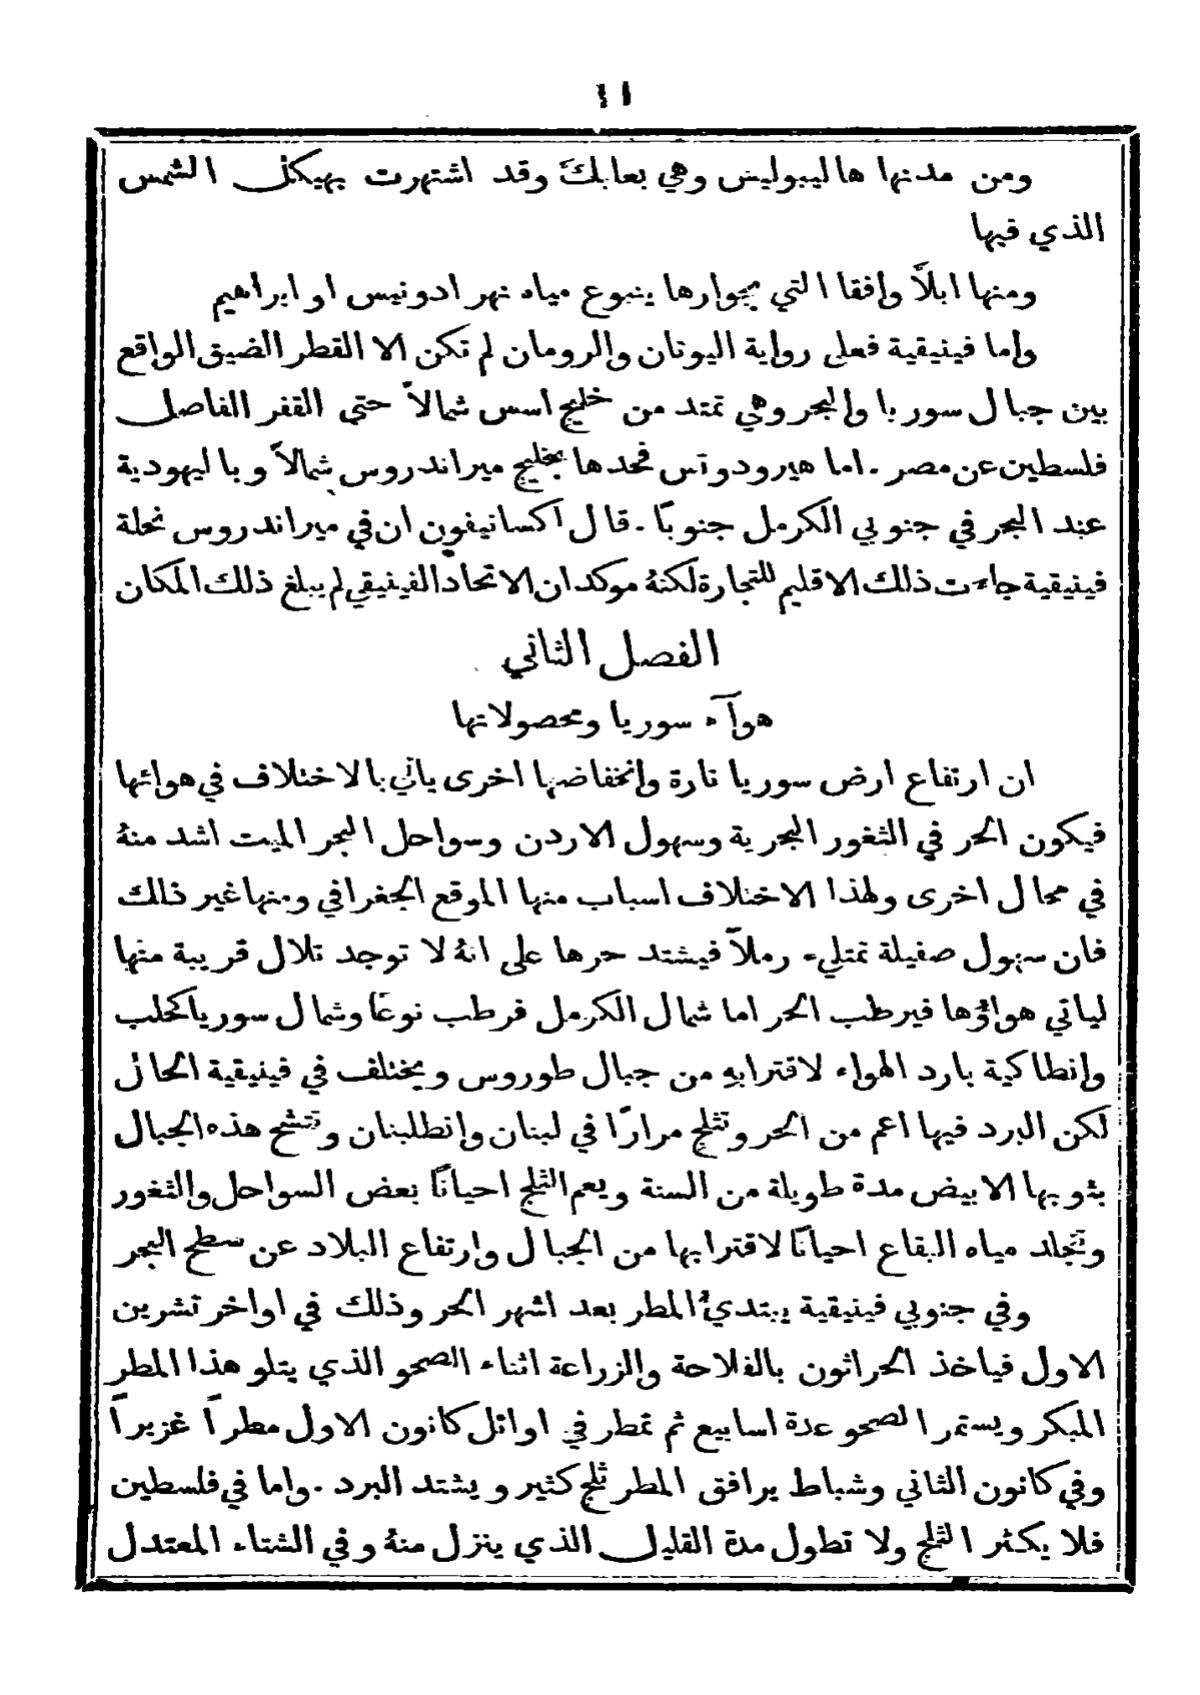 ١١
ومن مدنها هاليبوليس وهي بعابك وقد اشتهرت بهيكل الشمس
الذي فيها
ومنها ابلاَّ وافقا التي بجوارها ينبوع مياه نهر ادونيس او ابراهيم
واما فينيقية فعلى رواية اليونان والرومان لم تكن الا القطر الضيق الواقع
بين جبال سوريا والبحر وهي تمتد من خليج اسس شمالاً حتى القفر الفاصل
فلسطين عن مصر . اما هيرودوتس فحدها بخليج ميراندروس شمالاً وباليهودية
عند البحر في جنوبي الكرمل جنوبًا . قال اكسانيفون ان في ميراندروس نحلة
فينيقية جاءت ذلك الاقليم للتجارة لكنهُ موكد ان الاتحاد الفينيقي لم يبلغ ذلك المكان
الفصل الثاني
هوآء سوريا ومحصولاتها
ان ارتفاع ارض سوريا تارة وانخفاضها اخرى ياتي بالاختلاف في هوائها
فيكون الحر في الثغور البحرية وسهول الاردن وسواحل البحر الميت اشد منهُ
في محال اخرى ولهذا الاختلاف اسباب منها الموقع الجغرافي ومنها غير ذلك
فان سهول صفيلة تمتليء رملاً فيشتد حرها على انهُ لا توجد تلال قريبة منها
لياتي هواؤها فيرطب الحر اما شمال الكرمل فرطب نوعًا وشمال سوريا كحلب
وانطاكية بارد الهواء لاقترابهِ من جبال طوروس ويختلف في فينيقية الحال
لكن البرد فيها اعم من الحر وتثلج مرارًا في لبنان وانطلبنان وتتشح هذه الجبال
بثوبها الابيض مدة طويلة من السنة ويعم الثلج احيانًا بعض السواحل والثغور
وتجلد مياه البقاع احيانًا لاقترابها من الجبال وارتفاع البلاد عن سطح البحر
وفي جنوبي فينيقية يبتدئُ المطر بعد اشهر الحر وذلك في اواخر تشرين
الاول فياخذ الحراثون بالفلاحة والزراعة اثناء الصحو الذي يتلو هذا المطر
المبكر ويستمر الصحو عدة اسابيع ثم تمطر في اوائل كانون الاول مطراً غزيراً
وفي كانون الثاني وشباط يرافق المطر ثلج كثير ويشتد البرد . واما في فلسطين
فلا يكثر الثلج ولا تطول مدة القليل الذي ينزل منهُ وفي الشتاء المعتدل